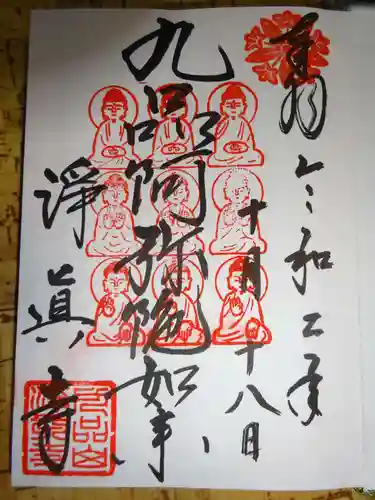 奉拝
令和二年
十月十八日
九品阿弥陀如来
淨眞寺